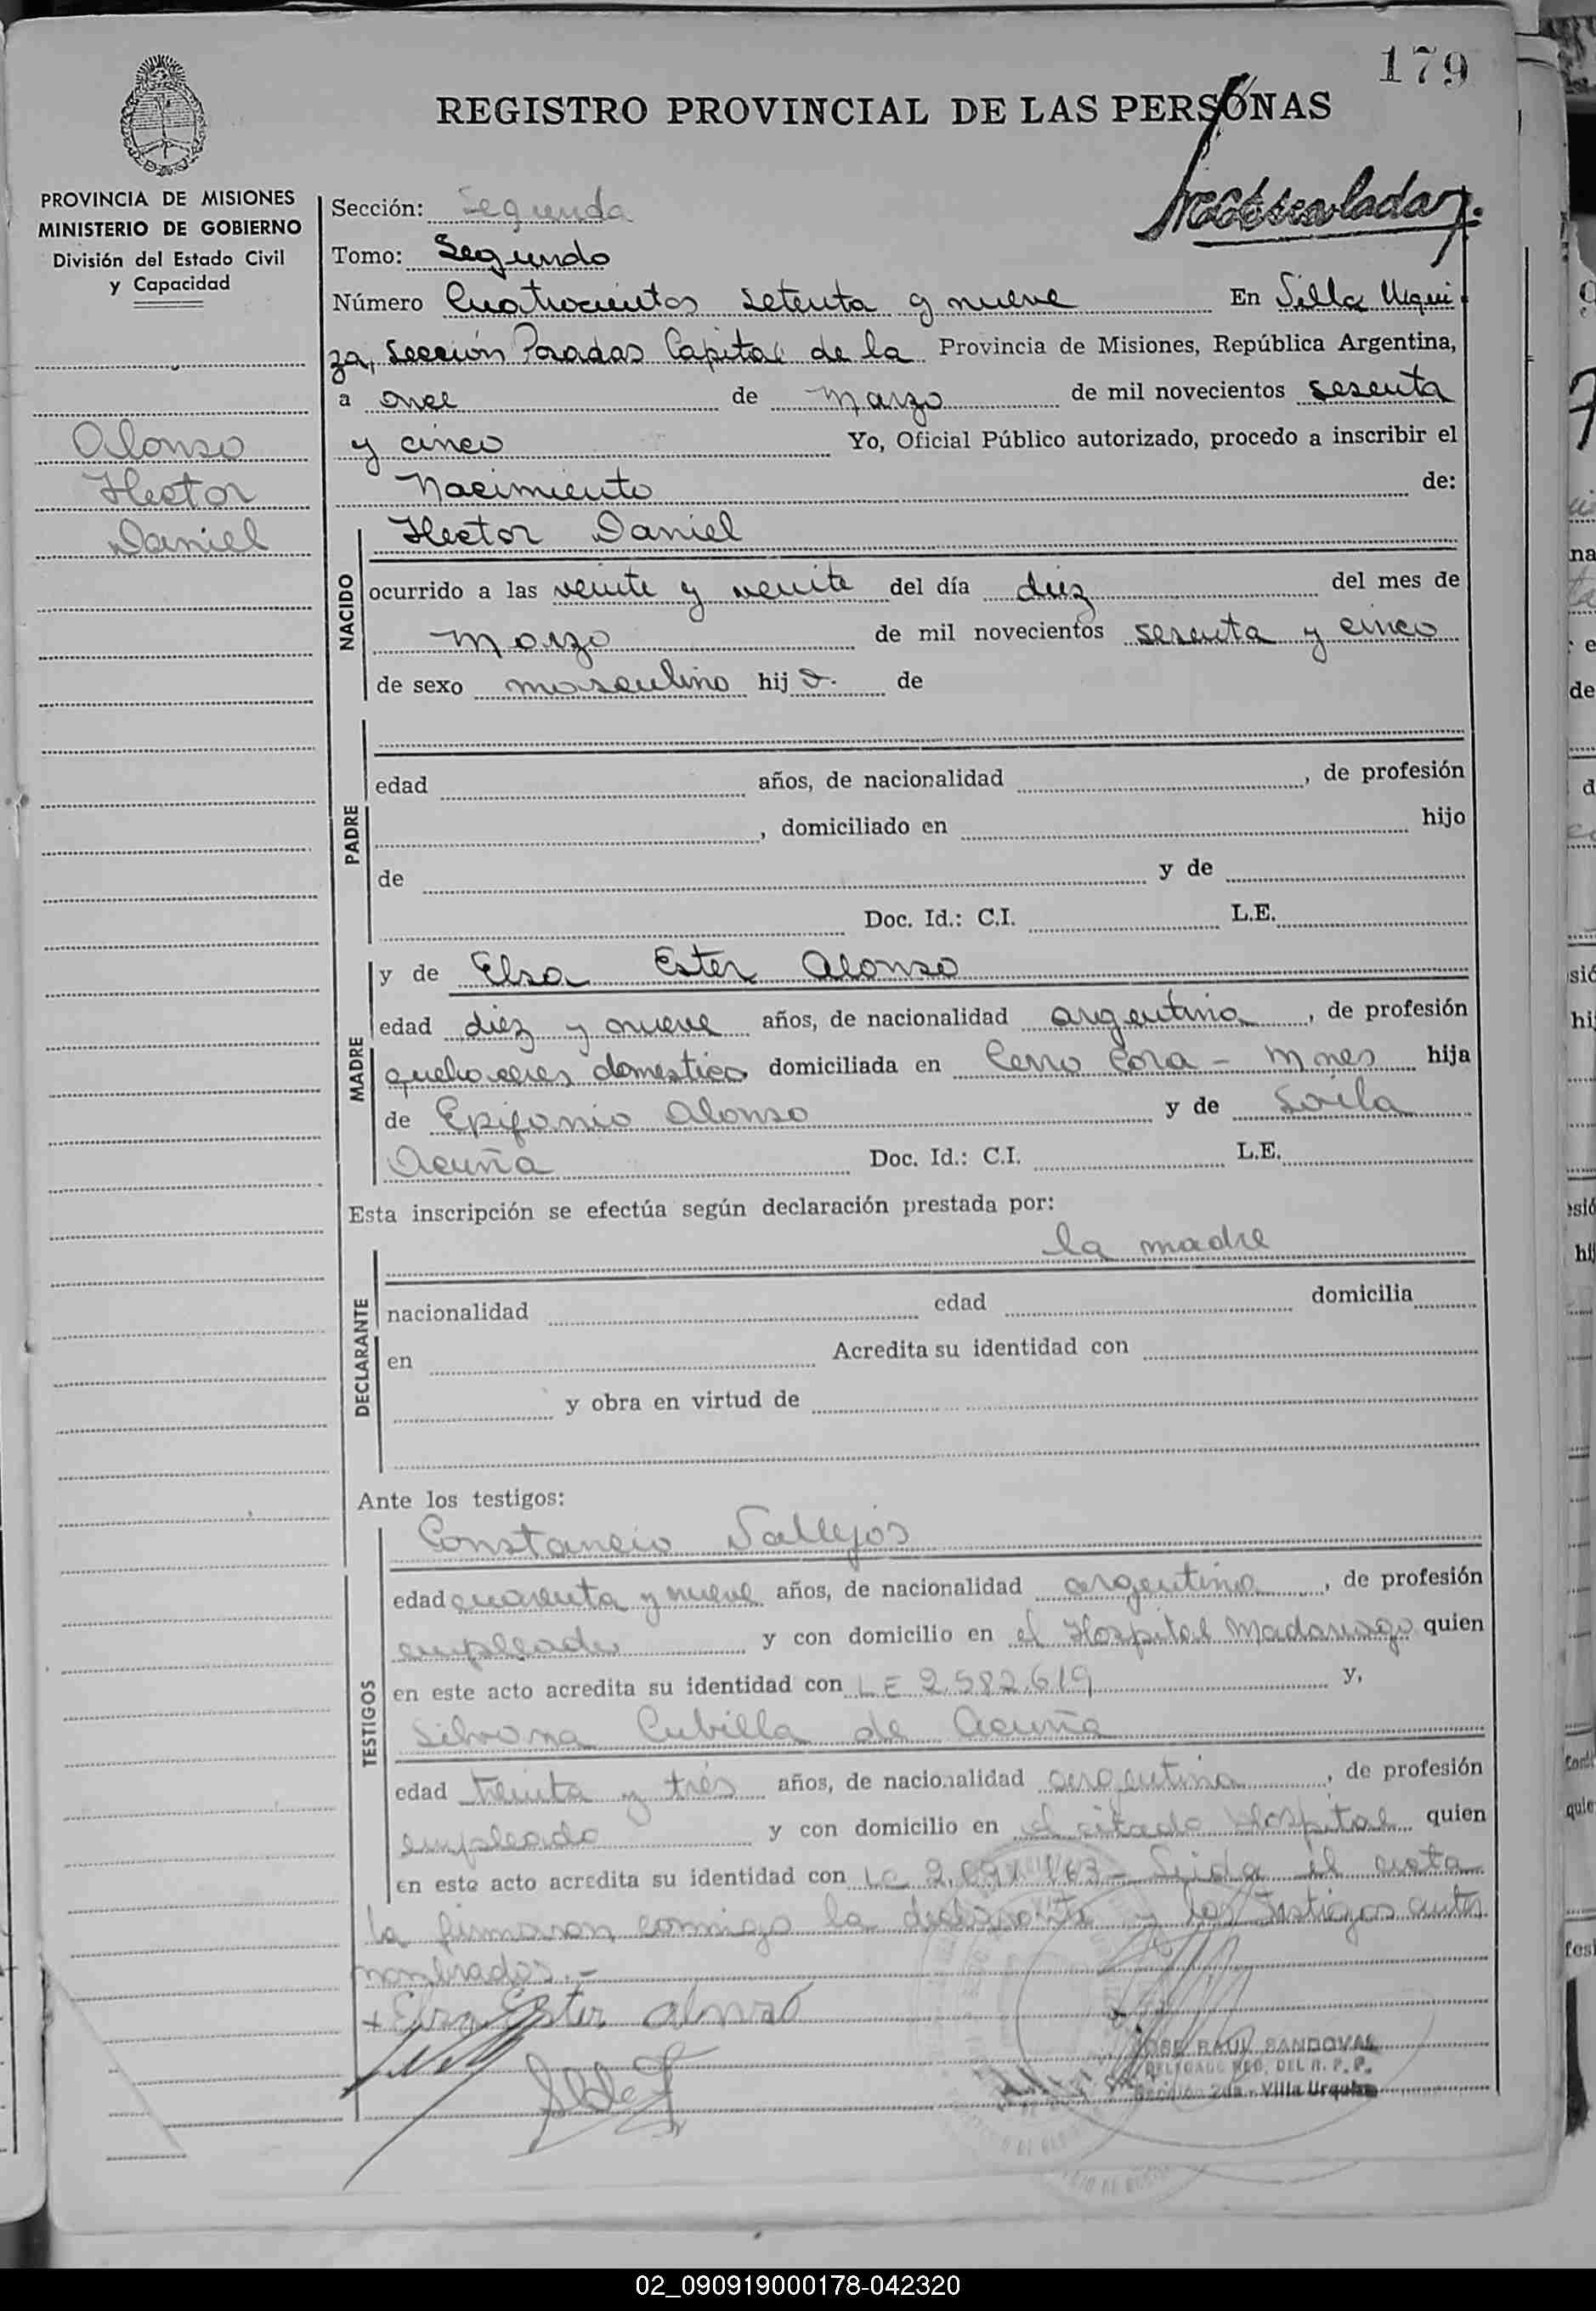 179
REGISTRO PROVINCIAL DE LAS PERSONAS
PROVINCIA DE MISIONES
MINISTERIO DE GOBIERNO
División del Estado Civil
y Capacidad
Alonso
Hector
Daniel
Sección: Segunda
Tomo: Segundo
Número Cuatrocientos setenta y nueve En Villa Urqui
za, Sección Posadas Capital de la Provincia de Misiones, República Argentina,
a once de Marzo de mil novecientos sesenta
y cinco Yo, Oficial Público autorizado, procedo a inscribir el
Nacimiento de:
NACIDO
Hector Daniel
ocurrido a las veinte y veinte del día diez del mes de
Marzo de mil novecientos sesenta y cinco
de sexo masculino hijo. de
PADRE
edad años, de nacionalidad , de profesión
, domiciliado en hijo
de y de
Doc. Id.: C.I. L.E.
MADRE
y de Elsa Ester Alonso
edad diez y nueve años, de nacionalidad argentina , de profesión
quehaceres domestico domiciliada en Cerro Cora - Mnes hija
de Epifanio Alonso y de Soila
Acuña Doc. Id.: C.I. L.E.
Esta inscripción se efectúa según declaración prestada por:
la madre
DECLARANTE
nacionalidad edad domicilia
en Acredita su identidad con
y obra en virtud de
Ante los testigos:
TESTIGOS
Constancio Vallejos
edad cuarenta y nueve años, de nacionalidad argentina , de profesión
empleado y con domicilio en el Hospital Madariaga quien
en este acto acredita su identidad con LE 2.582.619 y,
Silvana Cubilla de Acuña
edad treinta y tres años, de nacionalidad argentina , de profesión
empleada y con domicilio en el citado Hospital quien
en este acto acredita su identidad con LC Leida el acta
la firmaron conmigo la declarante y los testigos antes
nombrados.-
+ Elsa Ester Alonso
JOSE RAUL SANDOVAL
DELEGADO DEL R. P. P.
Sección 2da - Villa Urquiza
02_090919000178-042320